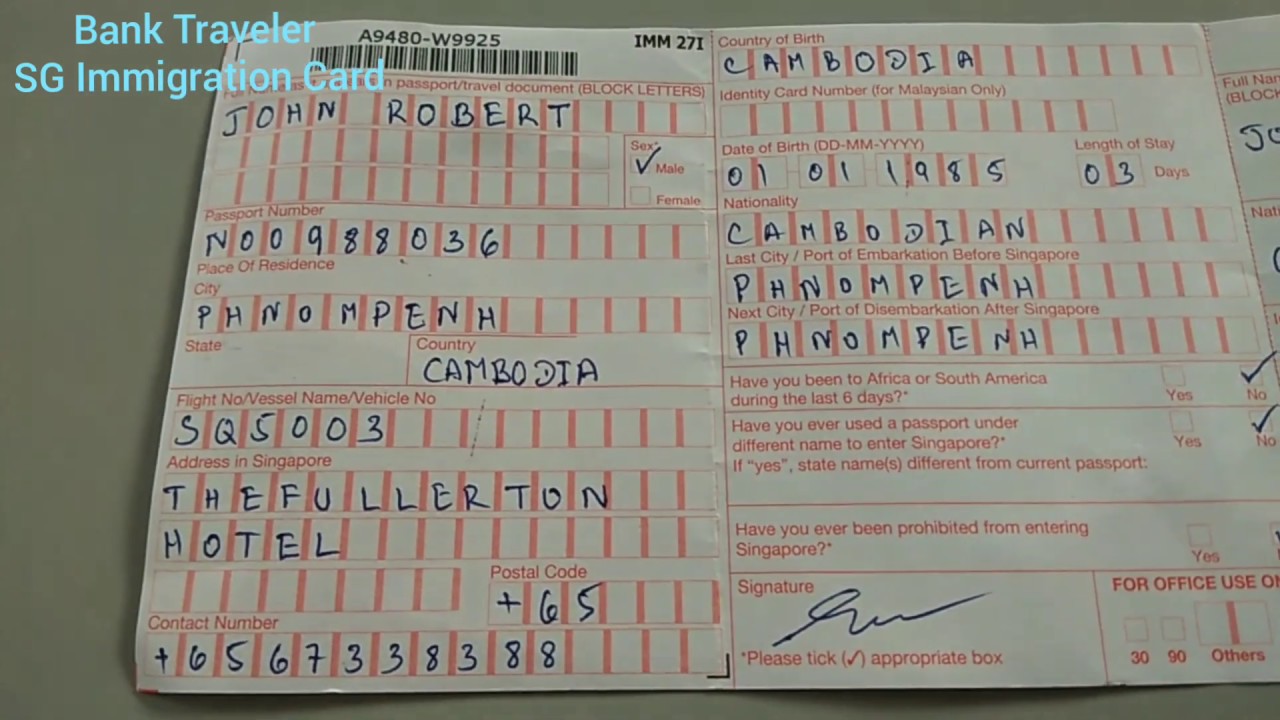 Bank Traveler
SG Immigration Card
A9480-W9925
IMM 27I
passport/travel document (BLOCK LETTERS)
JOHN ROBERT
Sex*
✓ Male
Female
Passport Number
N00988036
Place Of Residence
City
PHNOM PENH
State
Country
CAMBODIA
Flight No/Vessel Name/Vehicle No
SQ5003
Address in Singapore
THE FULLERTON
HOTEL
Postal Code
+65
Contact Number
+6567338388
Country of Birth
CAMBODIA
Identity Card Number (for Malaysian Only)
Date of Birth (DD-MM-YYYY)
01 01 1985
Length of Stay
03 Days
Nationality
CAMBODIAN
Last City / Port of Embarkation Before Singapore
PHNOM PENH
Next City / Port of Disembarkation After Singapore
PHNOM PENH
Have you been to Africa or South America
during the last 6 days?*
Yes
✓ No
Have you ever used a passport under
different name to enter Singapore?*
Yes
✓ No
If "yes", state name(s) different from current passport:
Have you ever been prohibited from entering
Singapore?*
Yes
Signature
*Please tick (✓) appropriate box
FOR OFFICE USE
30 90 Others
Full
(BLOCK